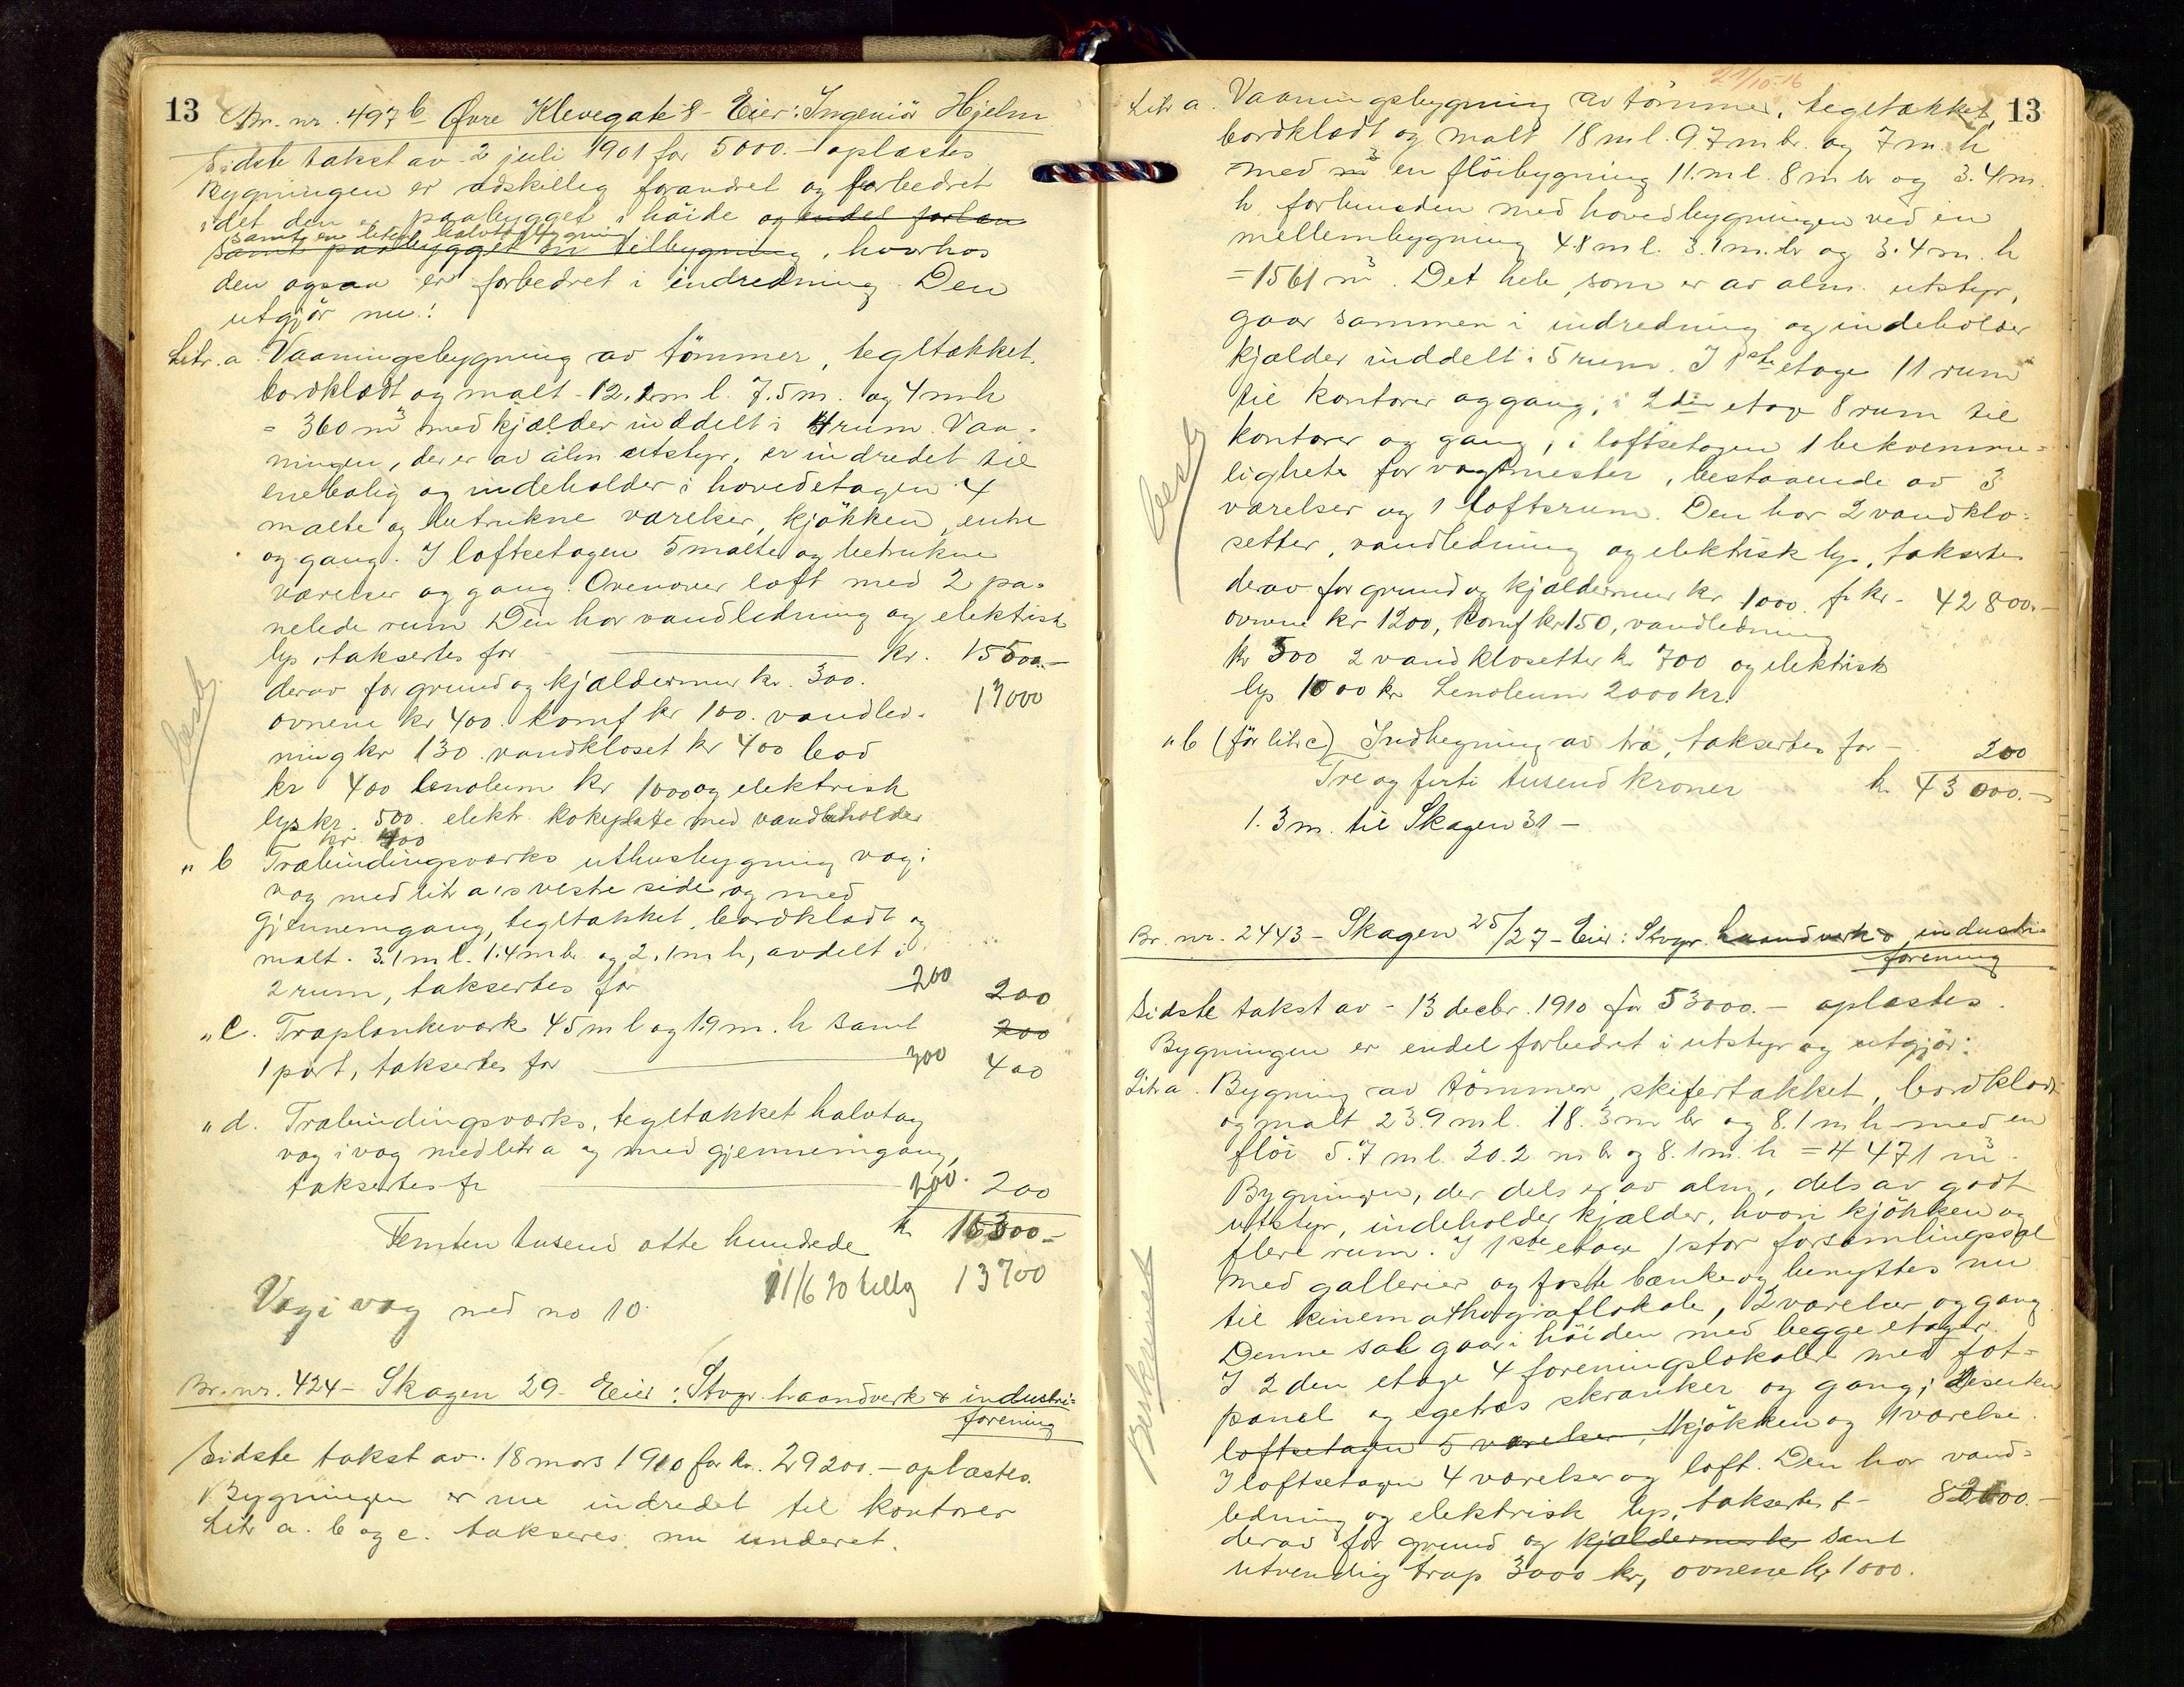 13 Br. nr. 497b Øvre Klevegate 8 - Eier: Ingeniör Hjelm
Sidste takst av 2 juli 1901 for 5000.- oplæstes
Bygningen er adskillig forandret og forbedret
idet den er paabygget i höide og endel forlæn
samt en liten halvtagbygning
samt paabygget en tilbygning, hvorhos
den ogsaa er forbedret i indredning. Den
utgjör nu:
Litr. a. Vaaningsbygning av tömmer, tegltækket,
bordklædt og malt - 12.1 m l. 7.5 m. og 4 m h
= 360 m3 med kjælder inddelt i 4 rum. Vaa-
ningen, der er av alm utstyr, er indredet til
enebolig og indeholder i hovedetagen 4
malte og betrukne værelser, kjökken, entre
og gang. I loftsetagen 5 malte og betrukne
værelser og gang. Ovenover loft med 2 pa-
nelede rum Den har vandledning og elektrisk
lys, taksertes for kr. 15500.-
derav for grund og kjældermur kr. 300. 13000
ovnene kr 400. komf kr 100. vandled-
ning kr 130 vandkloset kr 400 bad
kr 400 lenoleum kr 1000 og elektrisk
lys kr. 500. elektr. kokeplate med vandbeholder
kr. 400
" b Træbindingsværks uthusbygning væg i
væg med litr a's vestre side og med
gjennemgang, tegltækket, bordklædt og
malt. 3.1 m l. 1.4 m br og 2.1 m h, avdelt i
2 rum, taksertes for 200 200
" c. Træplankeværk 45 m l og 1.9 m. h samt 200
1 port, taksertes for 300 400
" d. Træbindingsværks, tegltækket halvtag
væg i væg med litr a og med gjennemgang,
taksertes fr 200. 200
Femten tusend otte hundrede kr 16300.-
11/6 20 tillæg 13700
Væg i væg med no 10.
Br. nr. 424 - Skagen 29 - Eier: Stvgr. haandverk & industri-
forening
Sidste takst av. 18 mars 1910 for kr. 29200.- oplæstes
Bygningen er nu indredet til kontorer
Litr a. b og c. takseres nu underet.
21/10-16
13
Litr a. Vaaningsbygning av tömmer, tegltækket,
bordklædt og malt 18 m l. 9.7 m br. og 7 m. h
med en flöibygning 11. m l. 8 m br og 3.4 m.
h forbunden med hovedbygningen ved en
mellembygning 4.8 m l. 3.1 m. br og 3.4 m. h
= 1561 m3. Det hele, som er av alm. utstyr,
gaar sammen i indredning og indeholder
kjælder inddelt i 5 rum. I 1ste etage 11 rum
til kontorer og gang; i 2den etage 8 rum til
kontorer og gang; i loftsetagen 1 bekvemme-
lighete for vagtmester, bestaaende av 3
værelser og 1 loftsrum. Den har 2 vandklo-
setter, vandledning og elektrisk lys, taksertes
derav for grund og kjældermur kr 1000. fr kr. 42800.-
ovnene kr 1200, komf kr 150, vandledning
kr 500 2 vandklosetter kr 700 og elektrisk
lys 1000 kr Lenoleum 2000 kr.
" b (för litr c) Indhegning av træ, taksertes for - 200
Tre og firti tusend kroner kr. 43000.-
1.3 m. til Skagen 31 -
Br. nr. 2443 - Skagen 25/27 - Eier: Stvgr. haandverks industri-
forening
Sidste takst av - 13 decbr. 1910 for 53000.- oplæstes.
Bygningen er endel forbedret i utstyr og utgjör:
Litr a. Bygning av tömmer, skifertækket, bordklædt
og malt 23.9 m l. 18.3 m br og 8.1 m h med en
flöi 5.7 m l. 20.2 m br og 8.1 m. h = 4471 m3.
Bygningen, der dels er av alm, dels av godt
utstyr, indeholder kjælder, hvori kjökken og
flere rum. I 1ste etage 1 stor forsamlingssal
med gallerier og faste bænke og benyttes nu
til kinematografiokale, 2 værelser og gang
Denne sal gaar i höiden med begge etager.
I 2den etage 4 foreningslokaler med fot-
panel og egetræs skranker og gang; desuten
loftsetagen 5 værelser, 1 kjökken og 1 værelse.
I loftsetagen 4 værelser og loft. Den har vand-
ledning og elektrisk lys, taksertes f - 82000.-
derav for grund og kjældermur kr samt
utvendig trap 3000 kr, ovnene kr 1000.
besk
besk
Beskrevet